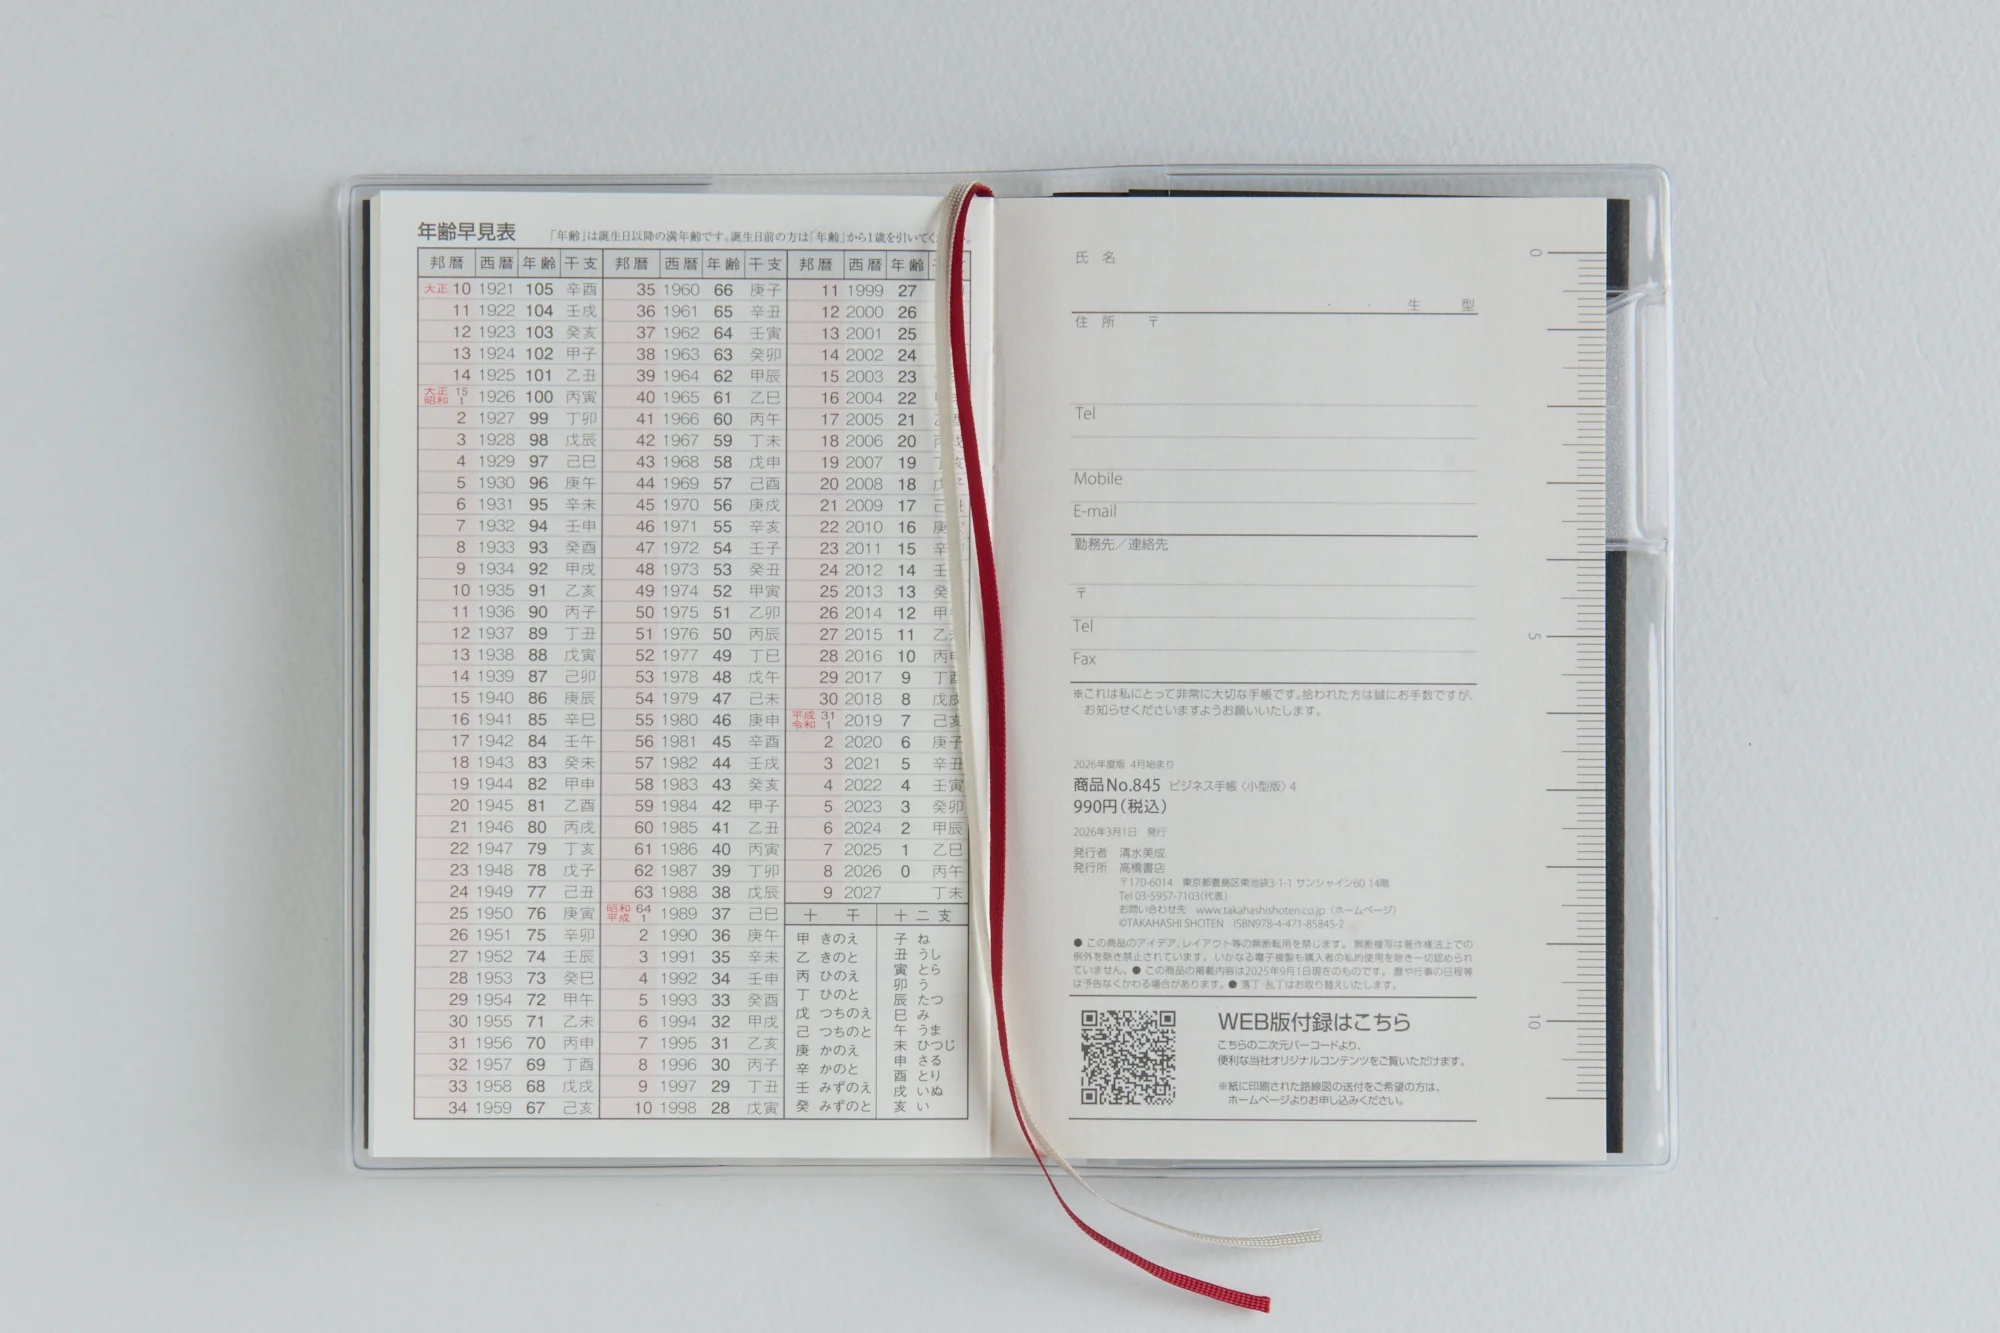 年齢早見表 「年齢」は誕生日以降の満年齢です。誕生日前の方は「年齢」から1歳を引いてく
邦暦 西暦 年齢 干支 邦暦 西暦 年齢 干支 邦暦 西暦 年齢
大正 10 1921 105 辛酉 35 1960 66 庚子 11 1999 27
11 1922 104 壬戌 36 1961 65 辛丑 12 2000 26
12 1923 103 癸亥 37 1962 64 壬寅 13 2001 25
13 1924 102 甲子 38 1963 63 癸卯 14 2002 24
14 1925 101 乙丑 39 1964 62 甲辰 15 2003 23
大正 15 昭和 1 1926 100 丙寅 40 1965 61 乙巳 16 2004 22
2 1927 99 丁卯 41 1966 60 丙午 17 2005 21
3 1928 98 戊辰 42 1967 59 丁未 18 2006 20
4 1929 97 己巳 43 1968 58 戊申 19 2007 19
5 1930 96 庚午 44 1969 57 己酉 20 2008 18
6 1931 95 辛未 45 1970 56 庚戌 21 2009 17
7 1932 94 壬申 46 1971 55 辛亥 22 2010 16 庚
8 1933 93 癸酉 47 1972 54 壬子 23 2011 15 辛
9 1934 92 甲戌 48 1973 53 癸丑 24 2012 14 壬
10 1935 91 乙亥 49 1974 52 甲寅 25 2013 13 癸
11 1936 90 丙子 50 1975 51 乙卯 26 2014 12 甲
12 1937 89 丁丑 51 1976 50 丙辰 27 2015 11 乙
13 1938 88 戊寅 52 1977 49 丁巳 28 2016 10 丙申
14 1939 87 己卯 53 1978 48 戊午 29 2017 9 丁酉
15 1940 86 庚辰 54 1979 47 己未 30 2018 8 戊戌
16 1941 85 辛巳 55 1980 46 庚申 平成 31 令和 1 2019 7 己亥
17 1942 84 壬午 56 1981 45 辛酉 2 2020 6 庚子
18 1943 83 癸未 57 1982 44 壬戌 3 2021 5 辛丑
19 1944 82 甲申 58 1983 43 癸亥 4 2022 4 壬寅
20 1945 81 乙酉 59 1984 42 甲子 5 2023 3 癸卯
21 1946 80 丙戌 60 1985 41 乙丑 6 2024 2 甲辰
22 1947 79 丁亥 61 1986 40 丙寅 7 2025 1 乙巳
23 1948 78 戊子 62 1987 39 丁卯 8 2026 0 丙午
24 1949 77 己丑 63 1988 38 戊辰 9 2027 丁未
25 1950 76 庚寅 昭和 64 平成 1 1989 37 己巳
26 1951 75 辛卯 2 1990 36 庚午
27 1952 74 壬辰 3 1991 35 辛未
28 1953 73 癸巳 4 1992 34 壬申
29 1954 72 甲午 5 1993 33 癸酉
30 1955 71 乙未 6 1994 32 甲戌
31 1956 70 丙申 7 1995 31 乙亥
32 1957 69 丁酉 8 1996 30 丙子
33 1958 68 戊戌 9 1997 29 丁丑
34 1959 67 己亥 10 1998 28 戊寅
十干
甲 きのえ
乙 きのと
丙 ひのえ
丁 ひのと
戊 つちのえ
己 つちのと
庚 かのえ
辛 かのと
壬 みずのえ
癸 みずのと
十二支
子 ね
丑 うし
寅 とら
卯 う
辰 たつ
巳 み
午 うま
未 ひつじ
申 さる
酉 とり
戌 いぬ
亥 い
氏 名
・ ・ 生 型
住 所 〒
Tel
Mobile
E-mail
勤務先／連絡先
〒
Tel
Fax
※これは私にとって非常に大切な手帳です。拾われた方は誠にお手数ですが、
お知らせくださいますようお願いいたします。
2026年度版 4月始まり
商品No.845 ビジネス手帳〈小型版〉4
990円（税込）
2026年3月1日 発行
発行者 清水美成
発行所 高橋書店
〒170-6014 東京都豊島区東池袋3-1-1 サンシャイン60 14階
Tel 03-5957-7103(代表)
お問い合わせ先 www.takahashishoten.co.jp（ホームページ）
©TAKAHASHI SHOTEN ISBN978-4-471-85845-2
● この商品のアイデア、レイアウト等の無断転用を禁じます。 無断複写は著作権法上での
例外を除き禁止されています。 いかなる電子複製も購入者の私的使用を除き一切認められ
ていません。● この商品の掲載内容は2025年9月1日現在のものです。 暦や行事の日程等
は予告なくかわる場合があります。● 落丁・乱丁はお取り替えいたします。
WEB版付録はこちら
こちらの二次元バーコードより、
便利な当社オリジナルコンテンツをご覧いただけます。
※紙に印刷された路線図の送付をご希望の方は、
ホームページよりお申し込みください。
0
5
10